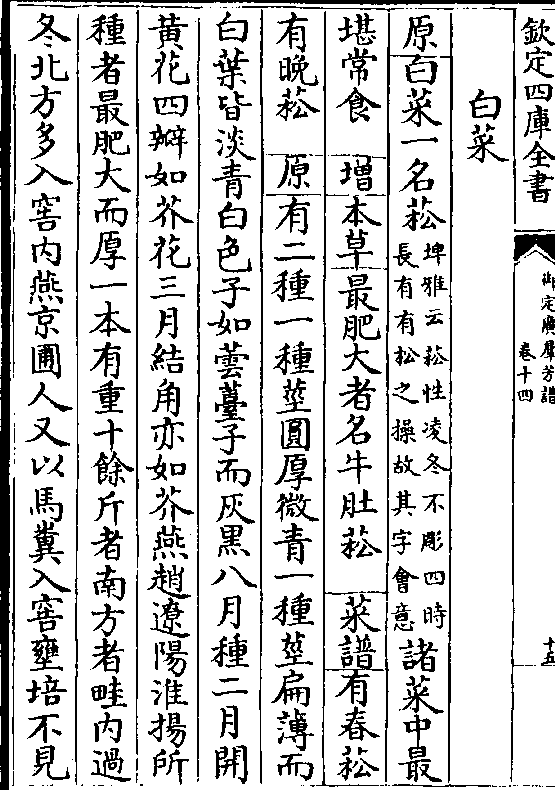 欽定四庫全書
御定廣羣芳譜
卷十四
十五
白菜
原白菜一名菘
埤雅云菘性凌冬不彫四時
長有有松之操故其字會意
諸菜中最
堪常食 增本草最肥大者名牛肚菘 菜譜有春菘
有晚菘 原有二種一種莖圓厚微青一種莖扁薄而
白葉皆淡青白色子如蕓薹子而灰黑八月種二月開
黃花四瓣如芥花三月結角亦如芥燕趙遼陽淮揚所
種者最肥大而厚一本有重十餘斤者南方者畦內過
冬北方多入窖內燕京圃人又以馬糞入窖壅培不見